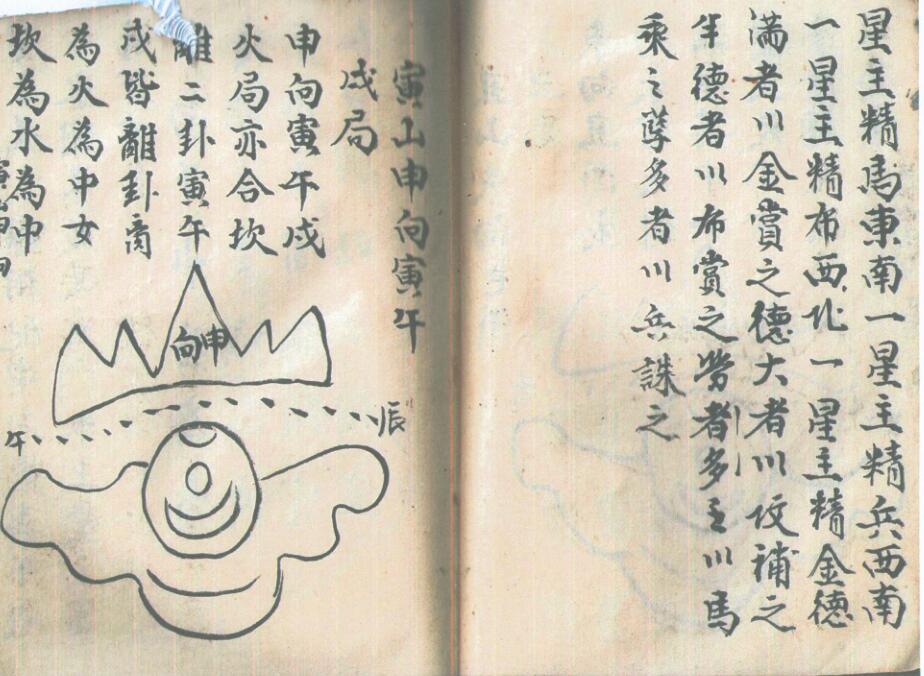 星主精馬東南一星主精兵西南
一星主精布西北一星主精金德
滿者以金賞之德大者以伎補之
半德者以布賞之勞者多主以馬
乘之孽多者以兵誅之
寅山申向寅午
戌局
申向寅午戌
火局亦合坎
離二卦寅午
戌皆離卦商
為火為中女
坎為水為中
申向
辰
午